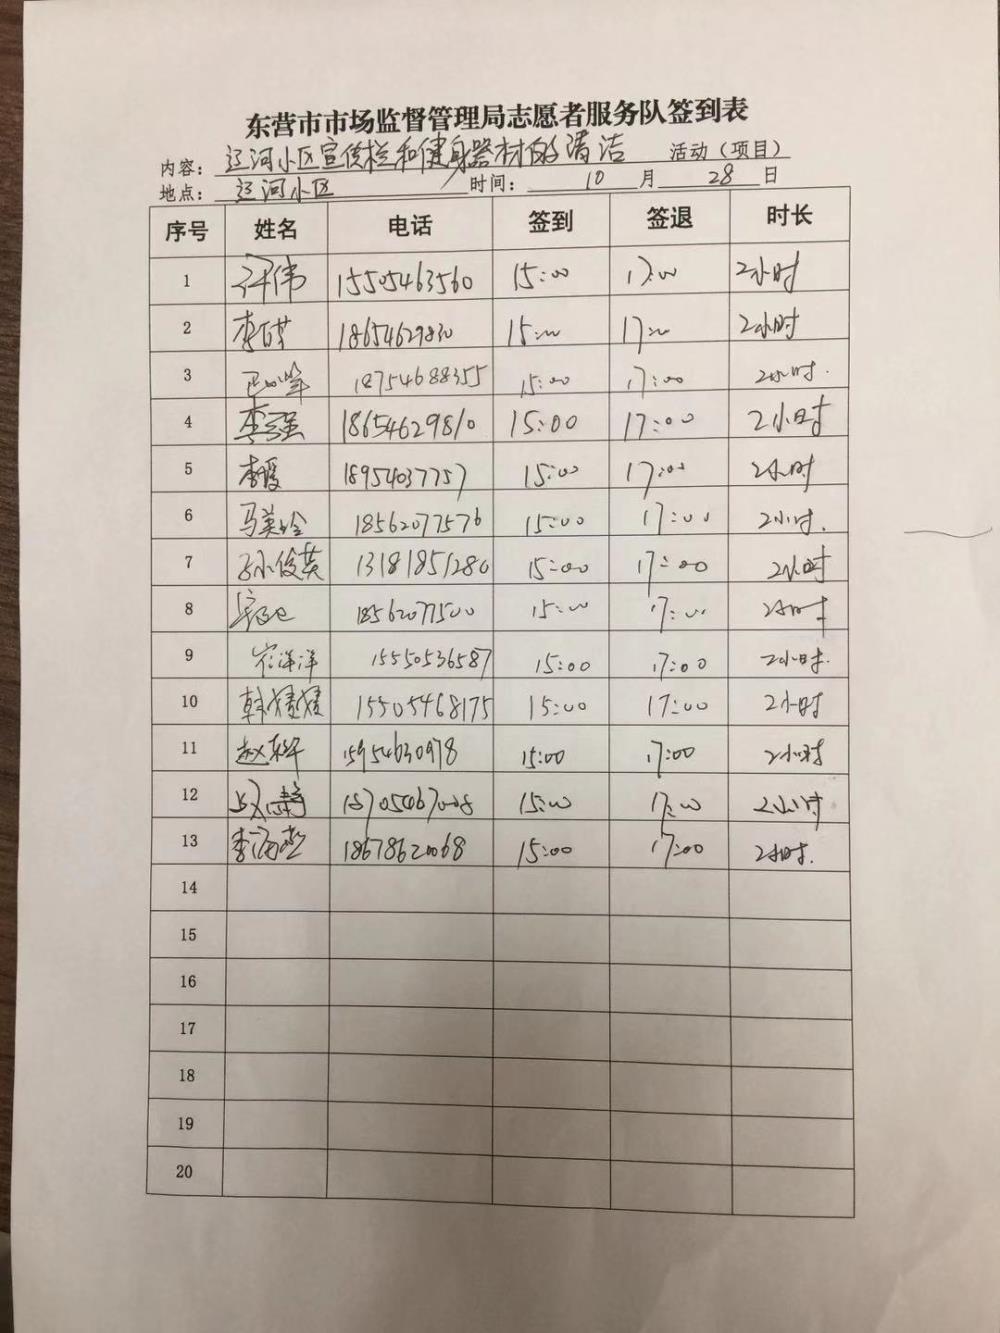 东营市市场监督管理局志愿者服务队签到表
内容：辽河小区宣传栏和健身器材的清洁 活动（项目）
地点：辽河小区 时间：10月28日
序号 姓名 电话 签到 签退 时长
1 许伟 15505463560 15:00 17:00 2小时
2 15:00 17:00 2小时
3 18754688355 15:00 17:00 2小时.
4 李强 18654629810 15:00 17:00 2小时
5 李霞 18954037757 15:00 17:00 2小时
6 马美玲 18562077576 15:00 17:00 2小时.
7 孙俊英 13181851280 15:00 17:00 2小时
8 18562077500 15:00 17:00 2小时
9 洋洋 15550536587 15:00 17:00 2小时.
10 韩媛媛 15505468175 15:00 17:00 2小时
11 15954630978 15:00 17:00 2小时
12 15:00 17:00 2小时
13 李海燕 18678620068 15:00 17:00 2小时.
14
15
16
17
18
19
20